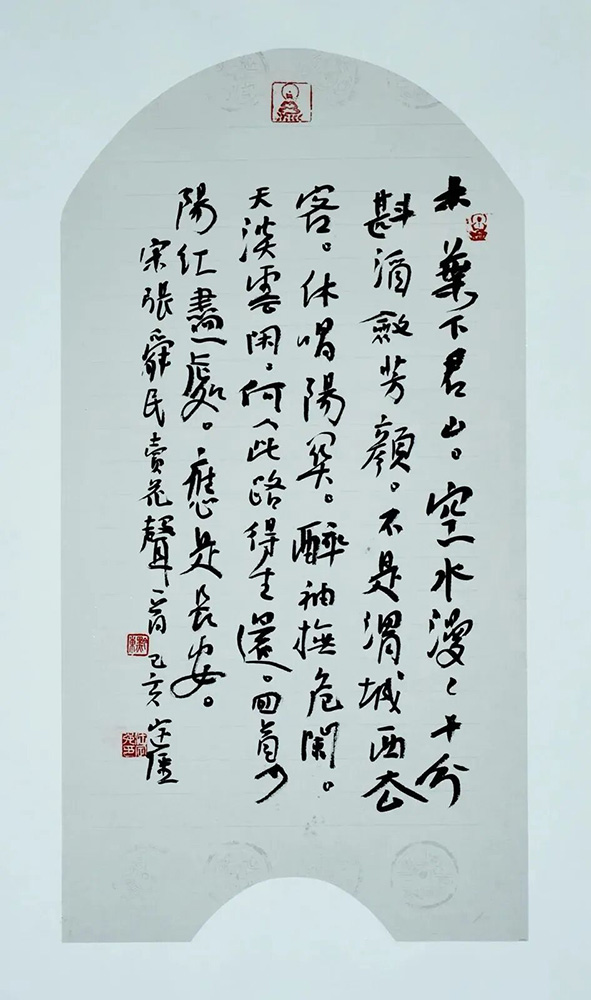 木葉下君山。空水漫々十分
斟酒斂芳顏。不是渭城西去
客。休唱陽關。醉袖撫危闌。
天淡雲閑。何人此路得生還。回首夕
陽紅盡處。應是長安。
宋張舜民賣花聲一首 己亥